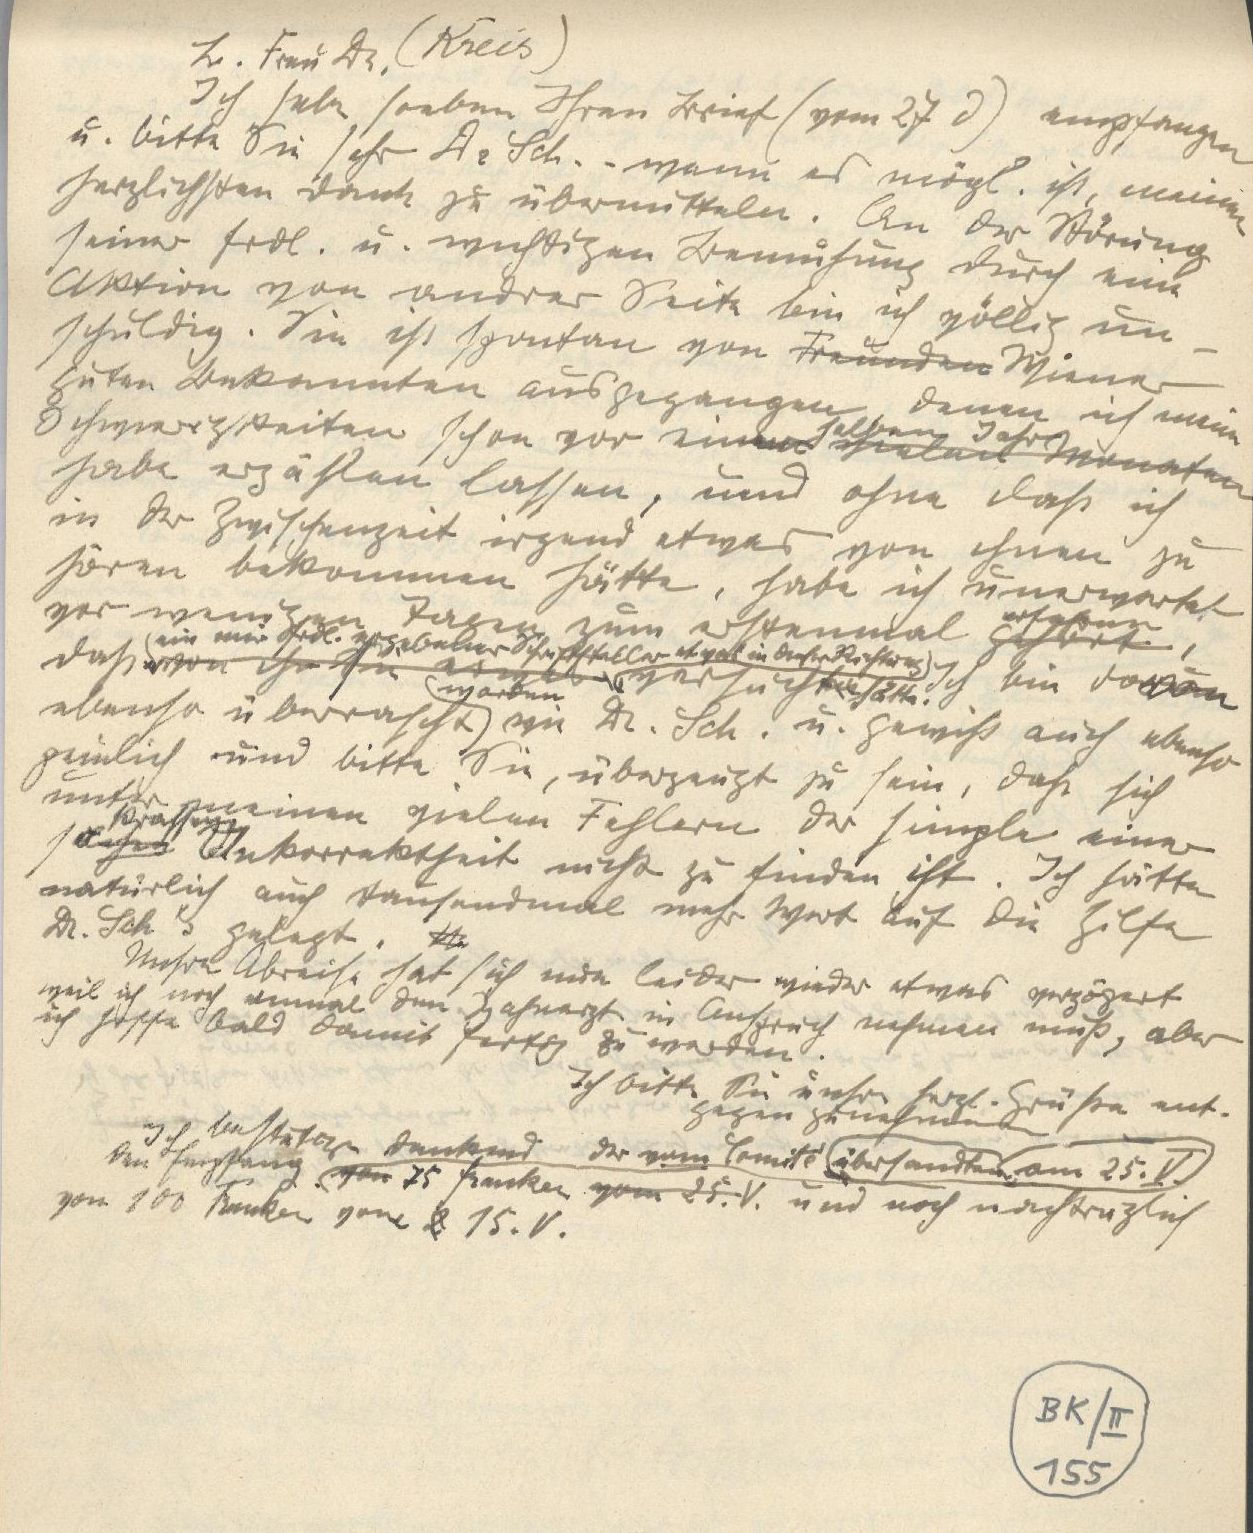 L. Frau Dr. (Kreis)
Ich habe soeben Ihren Brief (vom 27 d) empfangen
u. bitte Sie sehr Dr Sch. - wann es mögl. ist, meinen
herzlichsten Dank zu übermitteln. An der Störung
seiner frdl. u. wichtigen Bemühung durch eine
Aktion von andrer Seite bin ich völlig un-
schuldig. Sie ist spontan von Freunden Wiener
guten Bekannten ausgegangen, denen ich meine
Schwierigkeiten schon vor einem halben Jahr vielen Monaten
habe erzählen lassen, und ohne daß ich
in der Zwischenzeit irgend etwas von ihnen zu
hören bekommen hätte, habe ich unerwartet
vor wenigen Tagen zum erstenmal gehört erfahren,
daß (ein mir frdl. ergebener Schriftsteller etwas in dieser Richtung)
von versucht hätte. Ich bin davon
ebenso überrascht (worden) wie Dr. Sch. u. gewiß auch ebenso
peinlich und bitte Sie, überzeugt zu sein, daß sich
unter meinen vielen Fehlern der simple einer
krassen Unkorrektheit nicht zu finden ist. Ich hätte
natürlich auch tausendmal mehr Wert auf die Hilfe
Dr. Sch's gelegt.
Unsre Abreise hat sich nun leider wieder etwas verzögert
weil ich noch einmal den Zahnarzt in Anspruch nehmen muß, aber
ich hoffe bald damit fertig zu werden.
Ich bitte Sie unsre herzl. Grüße ent-
gegenzunehmen
Ich bestätige dankend der vom Comité übersandten am 25. V.
den Empfang von 75 Franken vom 25. V. und noch nachträglich
von 100 Franken vom 15. V.
BK/II
155